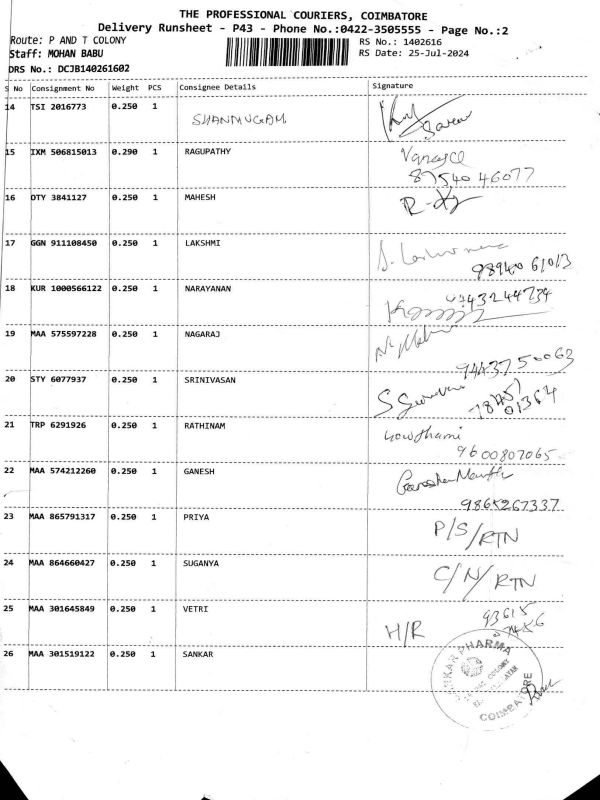 THE PROFESSIONAL COURIERS, COIMBATORE
Delivery Runsheet - P43 - Phone No.:0422-3505555 - Page No.:2
Route: P AND T COLONY RS No.: 1402616
Staff: MOHAN BABU RS Date: 25-Jul-2024
DRS No.: DCJB140261602
S No Consignment No Weight PCS Consignee Details Signature
14 TSI 2016773 0.250 1 SHANMUGAM
15 IXM 506815013 0.290 1 RAGUPATHY
87540 46077
16 DTY 3841127 0.250 1 MAHESH
17 GGN 911108450 0.250 1 LAKSHMI
98940 61013
18 KUR 1000566122 0.250 1 NARAYANAN
19 MAA 575597228 0.250 1 NAGARAJ
94437 50063
20 STY 6077937 0.250 1 SRINIVASAN
01364
21 TRP 6291926 0.250 1 RATHINAM
Gowthami
9600807065
22 MAA 574212260 0.250 1 GANESH
9865267337
23 MAA 865791317 0.250 1 PRIYA P/S/RTN
24 MAA 864660427 0.250 1 SUGANYA C/N/RTN
25 MAA 301645849 0.250 1 VETRI H/R
93615
26 MAA 301519122 0.250 1 SANKAR
PHARMA
COLONY
COIMBATORE